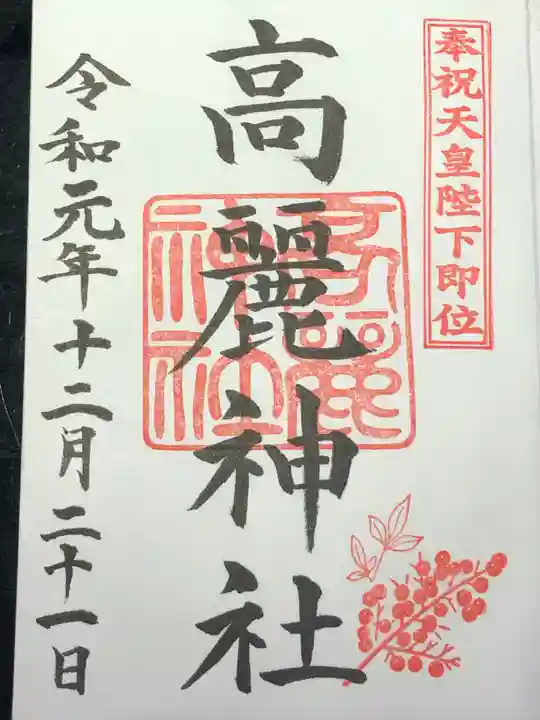 奉祝天皇陛下即位
高麗神社
高麗神社
令和元年十二月二十一日